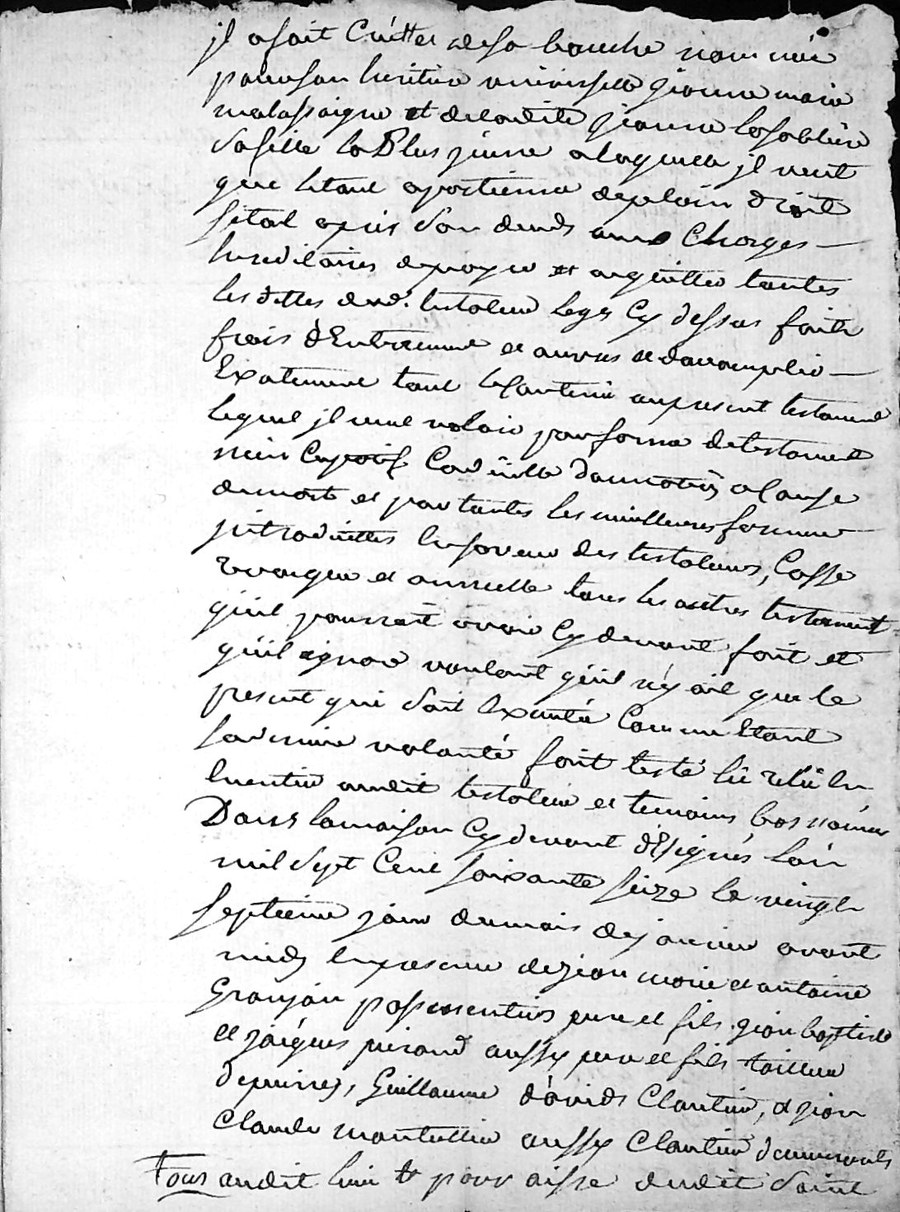 jl a fait Crétter de sa bouche nommée
pour son heritiere universelle jeanne marie
malassaigne et de ladite jeanne lasabliere
sa fille la Plus jeune a laquelle jl veut
que le tout apartienne de plain droit
sitot apres son deceds aux Charges
hereditaires de payer et acquitter toutes
les dettes dud. testateur legs Cy dessus faits
frais d'Enterrement et autres et d'accomplir
Exatement tout le Contenu au present testament
lequel jl veut valoir par forme de testament
Codicille donnation a Cause
de mort et par toutes les meilleures formes
jntroduittes En faveur des testateurs, Casse
revoque et annulle tous les autres testament
quil pourrait avoir Cy devant fait et
quil ignore voulant quil n'y ait que le
present qui soit Executé Comme Etant
sa derniere volonté fait testé lû relû En
Entier audit testateur et temoins bas només
Dans la maison Cy devant désignés L'an
mil Sept Cent soixante seize le vingt
septieme jour du mois de janvier avant
midy En presence de jean marie et antoine
Granjon passementiers pere et fils, jean baptiste
et jacques aussy pere et fils tailleur
de pierres, Guillaume davids Cloutier, et jean
Claude aussy Cloutier demeurants
Tous audit lieu pour aisse dudit Saint